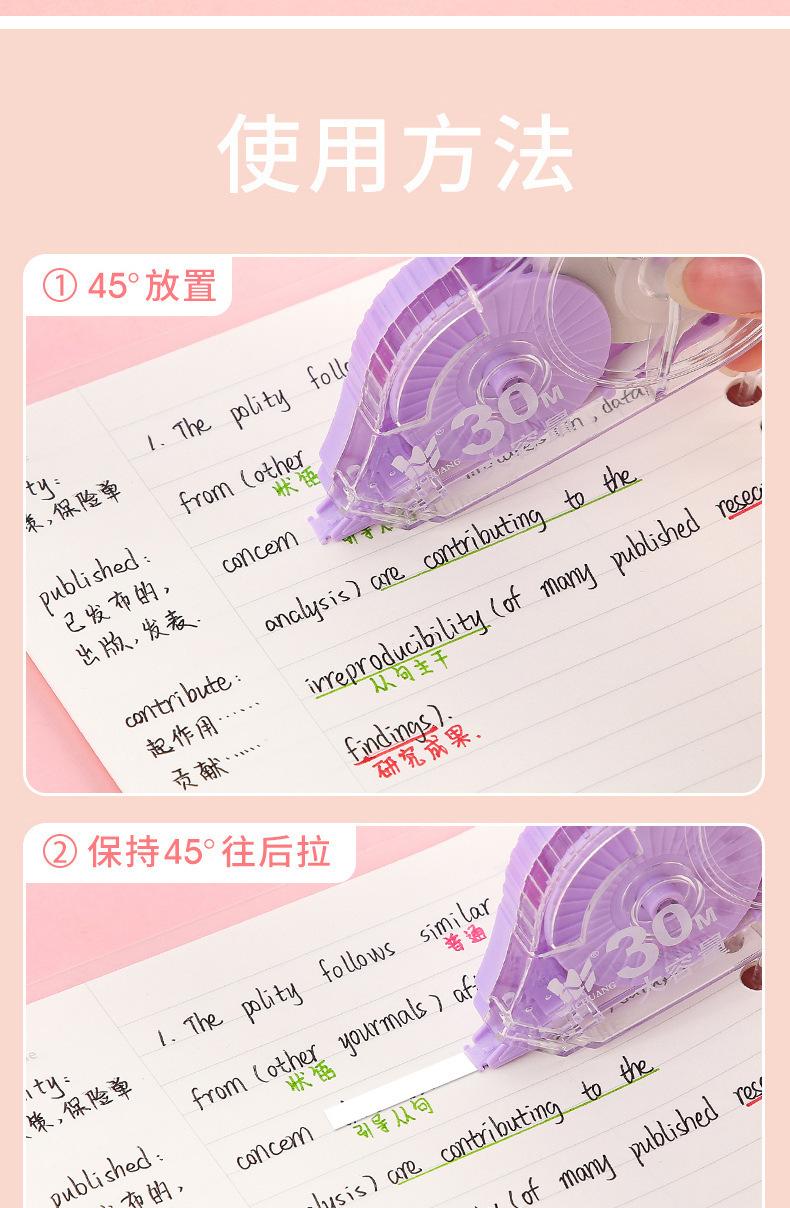 使用方法
① 45°放置
1. The polity follo
from (other
状语
30M
in, data
concern
are contributing to the
analysis)
irreproducibility (of many published
从句主干
findings).
研究成果.
ty:
策,保险单
published:
已发布的,
出版,发表.
contribute:
起作用……
贡献……
② 保持45°往后拉
1. The polity follows similar
普通
from (other yourmals)
状语
30M
大容量
concern
引导从句
are contributing to the
lysis)
(of many published
ity:
策,保险单
published:
布的,